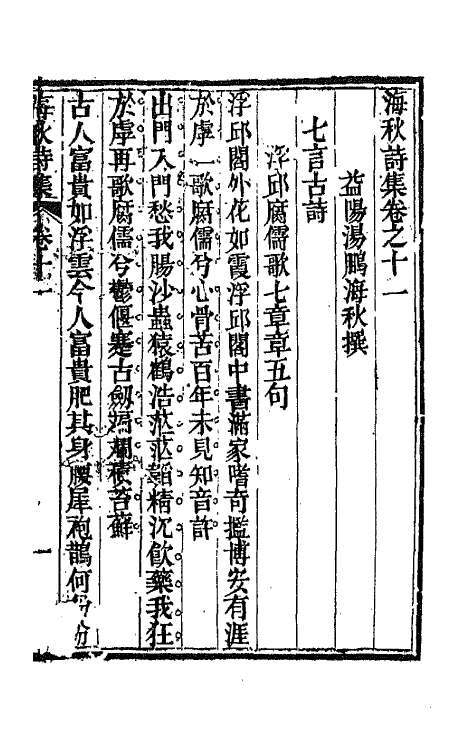 海秋詩集卷之十一
益陽湯鵬海秋撰
七言古詩
浮邱腐儒歌七章章五句
浮邱閣外花如霞浮邱閣中書滿家嗜奇擥博安有涯
於虖一歌腐儒兮心骨苦百年未見知音許
出門入門愁我腸沙蟲猿鶴浩茫茫韜精沉飲藥我狂
於虖再歌腐儒兮鬱偃蹇古劔斕積苔蘚
古人富貴如浮雲今人富貴肥其身腰犀袍鵲何
海秋詩集 卷十一 一